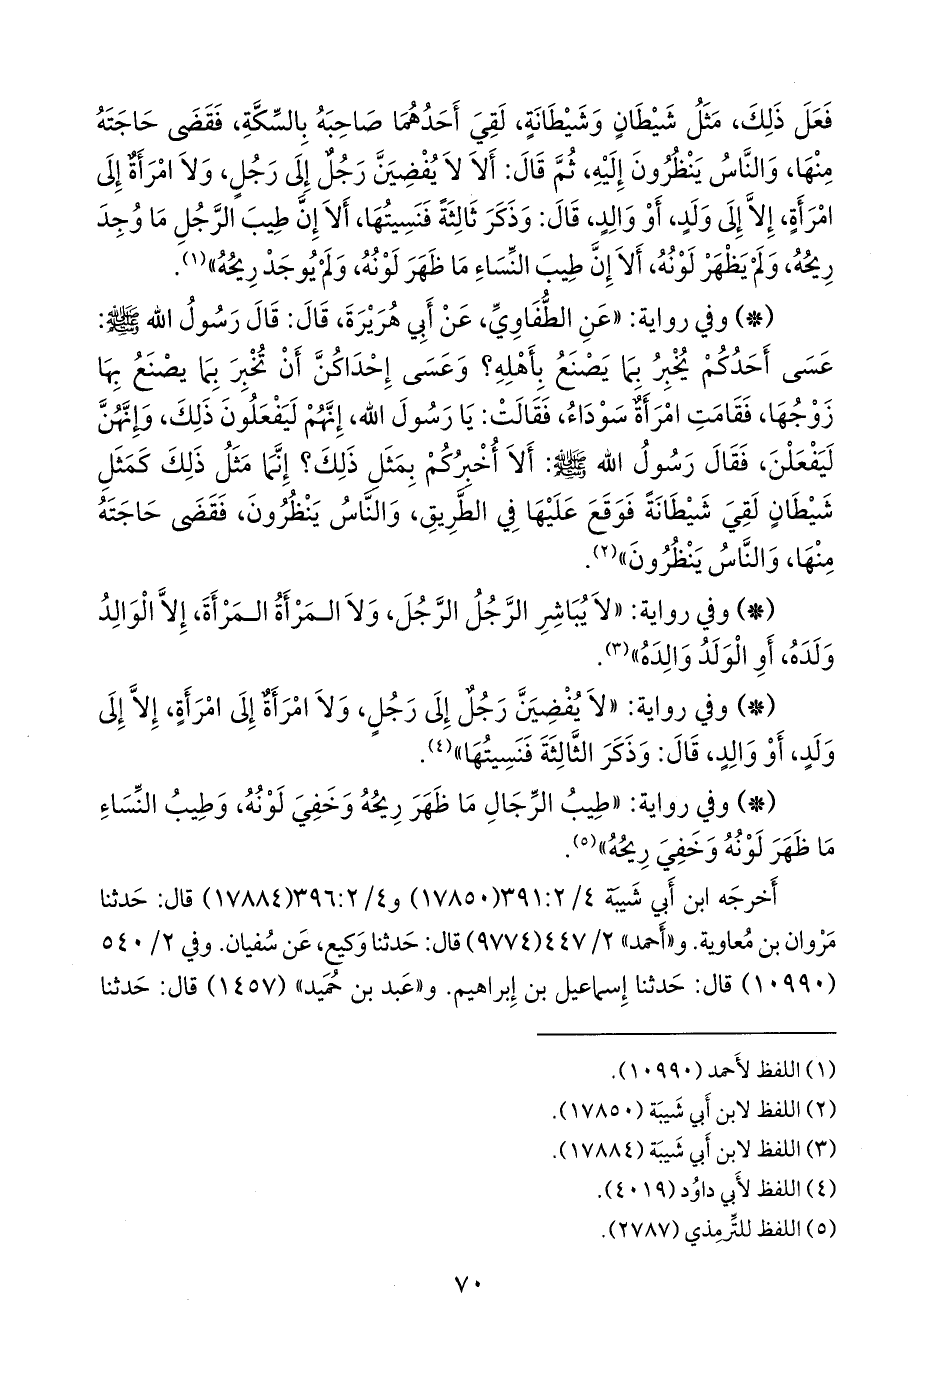 فَعَلَ ذَلِكَ، مَثَلُ شَيْطَانٍ وَشَيْطَانَةٍ، لَقِيَ أَحَدُهُمَا صَاحِبَهُ بِالسِّكَّةِ، فَقَضَى حَاجَتَهُ
مِنْهَا، وَالنَّاسُ يَنْظُرُونَ إِلَيْهِ، ثُمَّ قَالَ: أَلاَ لاَ يُفْضِيَنَّ رَجُلٌ إِلَى رَجُلٍ، وَلاَ امْرَأَةٌ إِلَى
امْرَأَةٍ، إِلاَّ إِلَى وَلَدٍ، أَوْ وَالِدٍ، قَالَ: وَذَكَرَ ثَالِثَةً فَنَسِيتُهَا، أَلاَ إِنَّ طِيبَ الرَّجُلِ مَا وُجِدَ
رِيحُهُ، وَلَمْ يَظْهَرْ لَوْنُهُ، أَلاَ إِنَّ طِيبَ النِّسَاءِ مَا ظَهَرَ لَوْنُهُ، وَلَمْ يُوجَدْ رِيحُهُ»(١).
(*) وفي رواية: «عَنِ الطُّفَاوِيِّ، عَنْ أَبِي هُرَيْرَةَ، قَالَ: قَالَ رَسُولُ الله ﷺ:
عَسَى أَحَدُكُمْ يُخْبِرُ بِمَا يَصْنَعُ بِأَهْلِهِ؟ وَعَسَى إِحْدَاكُنَّ أَنْ تُخْبِرَ بِمَا يصْنَعُ بِهَا
زَوْجُهَا، فَقَامَتِ امْرَأَةٌ سَوْدَاءُ، فَقَالَتْ: يَا رَسُولَ الله، إِنَّهُمْ لَيَفْعَلُونَ ذَلِكَ، وَإِنَّهُنَّ
لَيَفْعَلْنَ، فَقَالَ رَسُولُ الله ﷺ: أَلاَ أُخْبِرُكُمْ بِمَثَلِ ذَلِكَ؟ إِنَّمَا مَثَلُ ذَلِكَ كَمَثَلِ
شَيْطَانٍ لَقِيَ شَيْطَانَةً فَوَقَعَ عَلَيْهَا فِي الطَّرِيقِ، وَالنَّاسُ يَنْظُرُونَ، فَقَضَى حَاجَتَهُ
مِنْهَا، وَالنَّاسُ يَنْظُرُونَ»(٢).
(*) وفي رواية: «لاَ يُبَاشِرِ الرَّجُلُ الرَّجُلَ، وَلاَ الـمَرْأَةُ الـمَرْأَةَ، إِلاَّ الْوَالِدُ
وَلَدَهُ، أَوِ الْوَلَدُ وَالِدَهُ»(٣).
(*) وفي رواية: «لاَ يُفْضِيَنَّ رَجُلٌ إِلَى رَجُلٍ، وَلاَ امْرَأَةٌ إِلَى امْرَأَةٍ، إِلاَّ إِلَى
وَلَدٍ، أَوْ وَالِدٍ، قَالَ: وَذَكَرَ الثَّالِثَةَ فَنَسِيتُهَا»(٤).
(*) وفي رواية: «طِيبُ الرِّجَالِ مَا ظَهَرَ رِيحُهُ وَخَفِيَ لَوْنُهُ، وَطِيبُ النِّسَاءِ
مَا ظَهَرَ لَوْنُهُ وَخَفِيَ رِيحُهُ»(٥).
أَخرجَه ابن أَبي شَيبَة ٤/ ٢:٣٩١(١٧٨٥٠) و٤/ ٢:٣٩٦(١٧٨٨٤) قال: حَدثنا
مَرْوان بن مُعاوية. و«أَحمد» ٢/ ٤٤٧(٩٧٧٤) قال: حَدثنا وَكيع، عَن سُفيان. وفي ٢/ ٥٤٠
(١٠٩٩٠) قال: حَدثنا إِسماعيل بن إِبراهيم. و«عَبد بن حُميد» (١٤٥٧) قال: حَدثنا
(١) اللفظ لأَحمد (١٠٩٩٠).
(٢) اللفظ لابن أَبي شَيبَة (١٧٨٥٠).
(٣) اللفظ لابن أَبي شَيبَة (١٧٨٨٤).
(٤) اللفظ لأَبي داوُد (٤٠١٩).
(٥) اللفظ للتِّرمِذي (٢٧٨٧).
٧٠